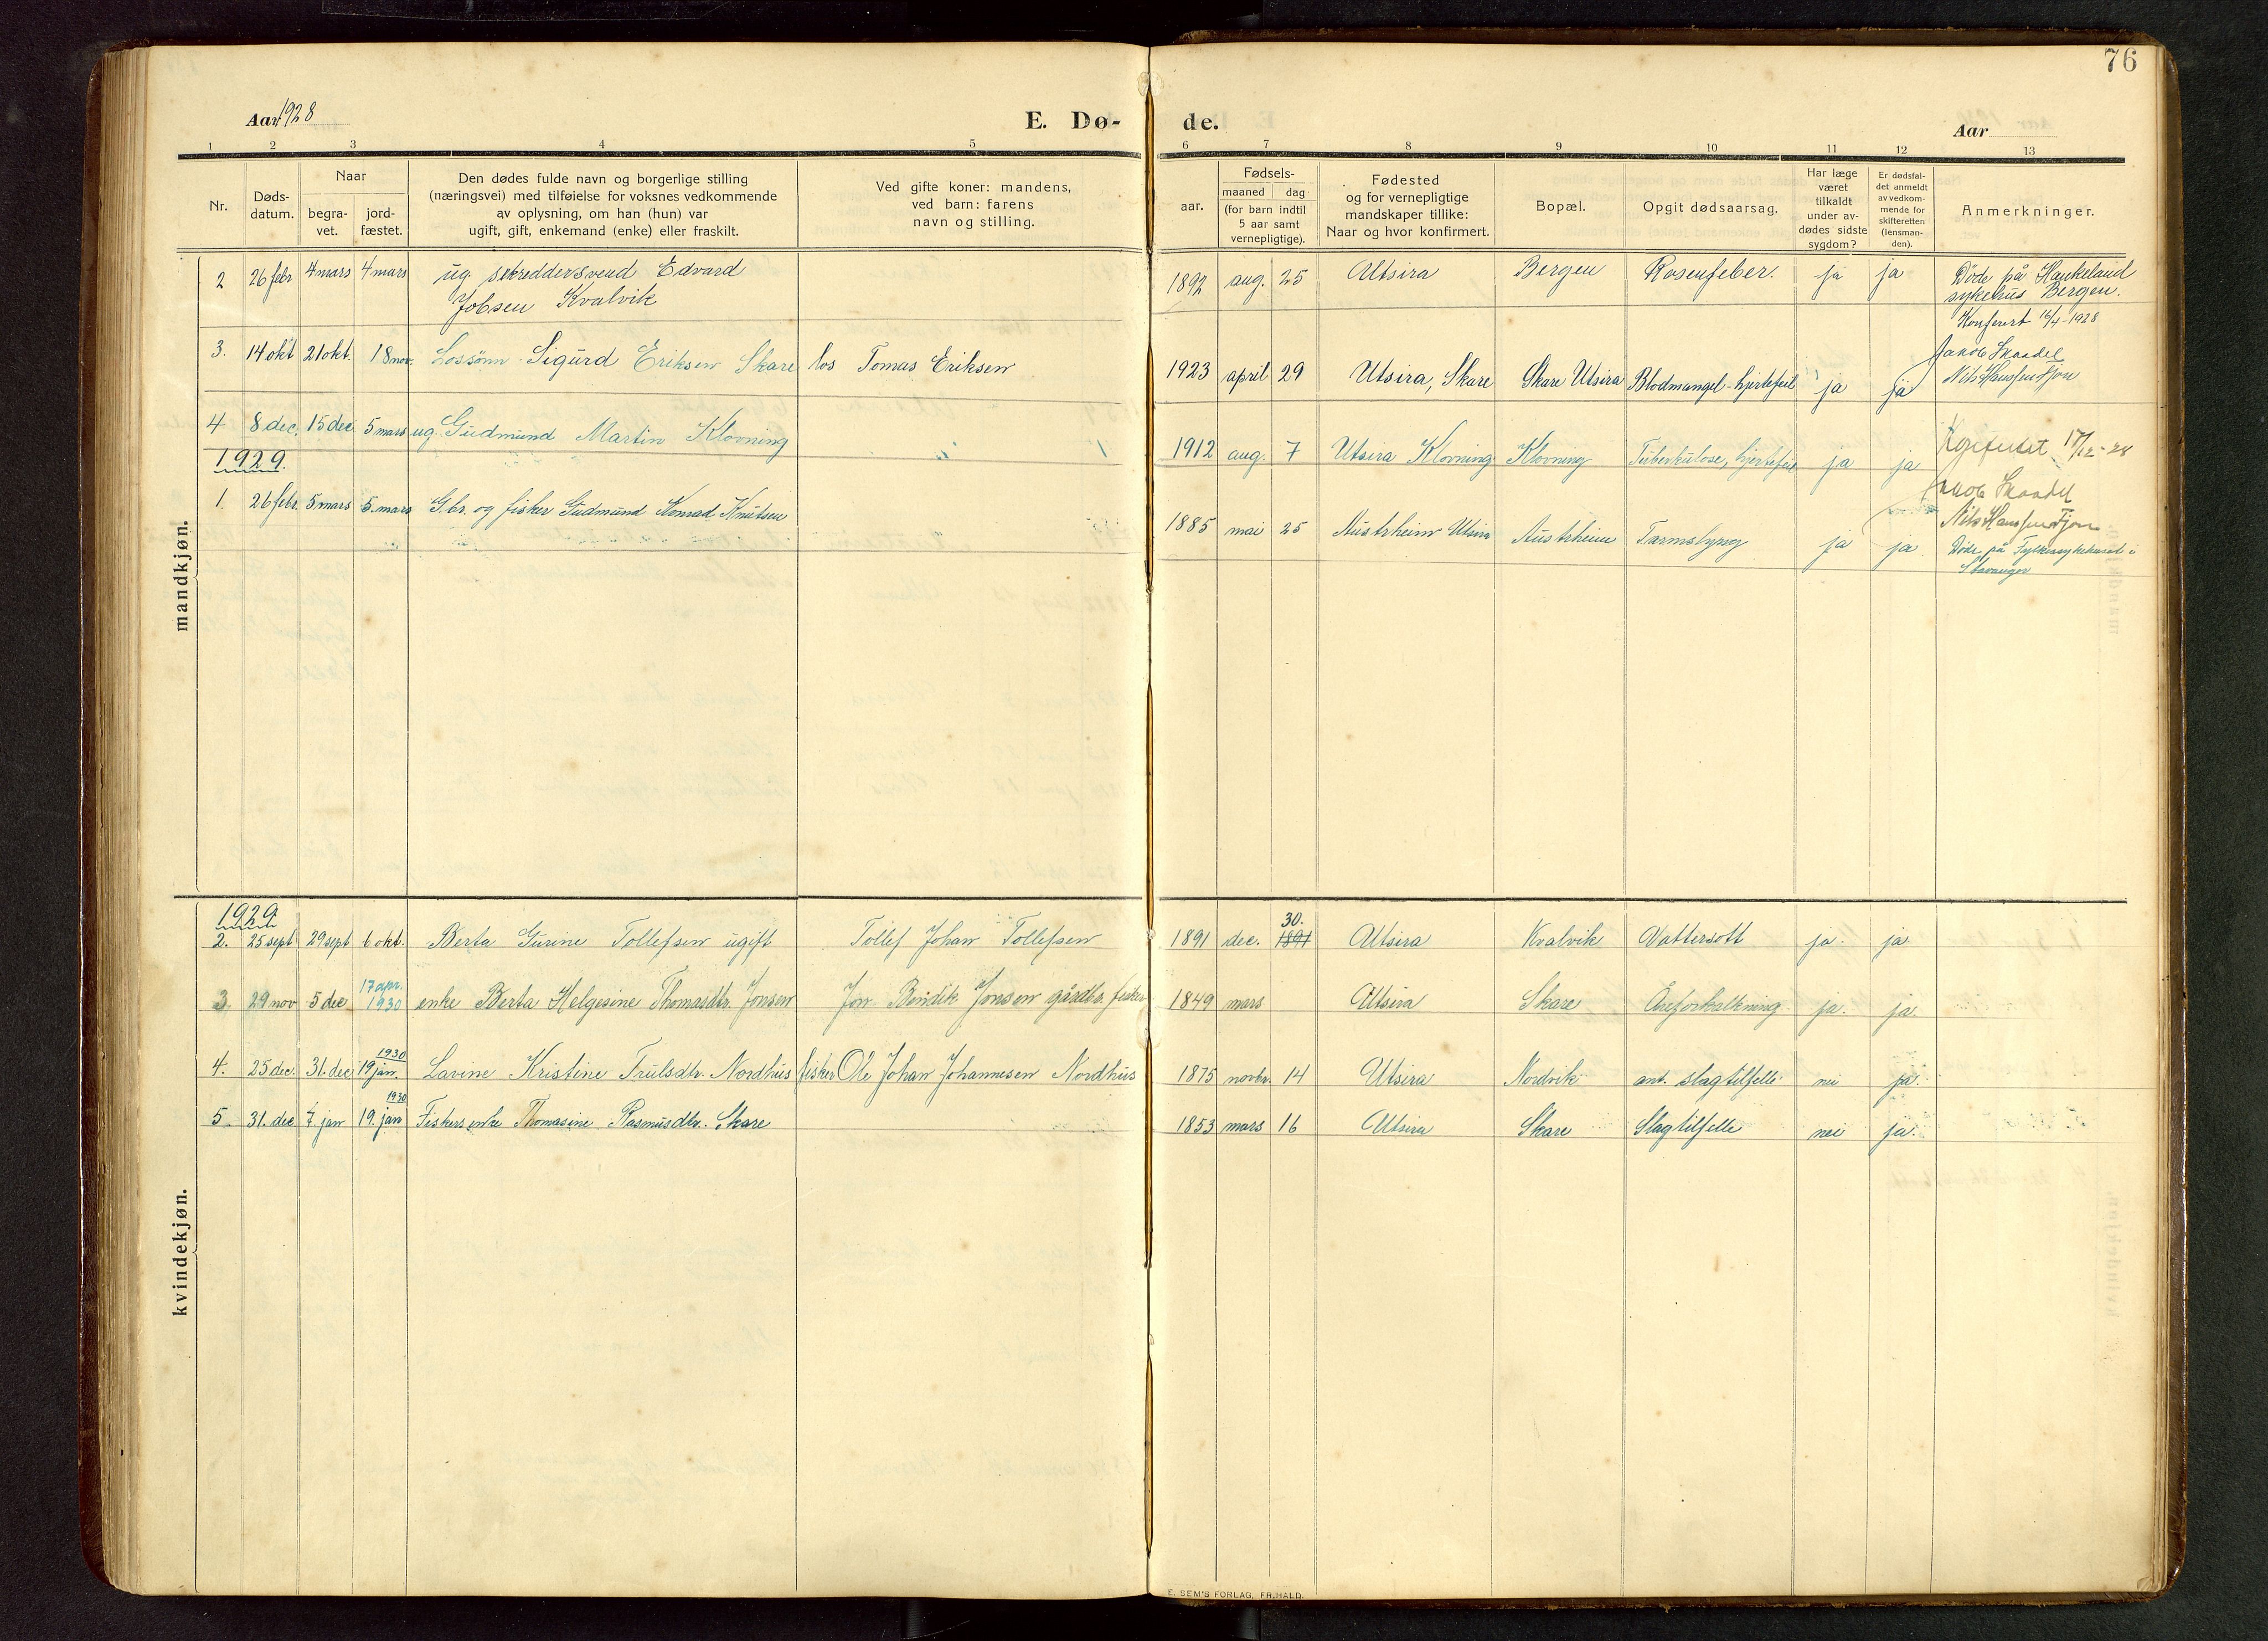 76
Aar 1928
E. Dø-
de.
Aar
1 2 3 4 5
6 7 8 9 10 11 12 13
Nr.
Døds-
datum.
Naar
begra-
vet.
jord-
fæstet.
Den dødes fulde navn og borgerlige stilling
(næringsvei) med tilføielse for voksnes vedkommende
av oplysning, om han (hun) var
ugift, gift, enkemand (enke) eller fraskilt.
Ved gifte koner: mandens,
ved barn: farens
navn og stilling.
Fødsels-
aar.
maaned dag
(for barn indtil
5 aar samt
vernepligtige).
Fødested
og for vernepligtige
mandskaper tillike:
Naar og hvor konfirmert.
Bopæl.
Opgit dødsaarsag.
Har læge
været
tilkaldt
under av-
dødes sidste
sygdom?
Er dødsfal-
det anmeldt
av vedkom-
mende for
skifteretten
(lensman-
den).
Anmerkninger.
mandkjøn.
2 26 febr 4 mars 4 mars ug. skreddersvend Edvard
Jobsen Kvalvik
1892 aug. 25 Utsira Bergen Rosenfeber. ja ja Døde på Haukeland
sykehus Bergen.
16/4-1928
3. 14 okt 21 okt. 18 nov. Lossønn Sigurd Eriksen Skare los Tomas Eriksen
1923 april 29 Utsira, Skare Skare Utsira Blodmangel - hjertefeil ja ja
Jakob Skaadel
Nils Hanssen Fjon
4 8 dec. 15 dec 5 mars ug. Gudmund Martin Klovning "
1912 aug. 7 Utsira Klovning Klovning Tuberkulose, hjertefeil ja ja
17/12-28
Jakob Skaadel
Nils Hanssen Fjon
1929.
1. 26 febr. 5 mars 5. mars G.br. og fisker Gudmund Konrad Knutsen "
1885 mai 25 Austrheim Utsira Austrheim Tarmslyng ja ja Døde på Fylkessykehuset i
Stavanger
kvindekjøn.
1929
2. 25 sept 29 sept 6 okt. Berta Gurine Tollefsen ugift Tollef Johan Tollefsen
30.
1891 dec. 1891 Utsira Kvalvik Vattersott ja. ja.
17 apr.
3. 29 nov 5 dec 1930 enke Berta Helgesine Thomasdtr. Jonsen Jon Bendik Jonsen gårdbr. fisker
1849 mars Utsira Skare Åreforkalkning ja. ja.
1930
4. 25 dec. 31. dec 19 jan. Lavine Kristine Trulsdtr. Nordhus fisker Ole Johan Johannesen Nordhus
1875 novbr. 14 Utsira Nordvik ant. slagtilfelle nei ja.
1930
5. 31. dec 7 jan 19. jan Fiskers enke Thomasine Rasmusdtr. Skare
1853 mars 16 Utsira Skare Slagtilfelle nei ja.
E. SEM'S FORLAG, FR.HALD.